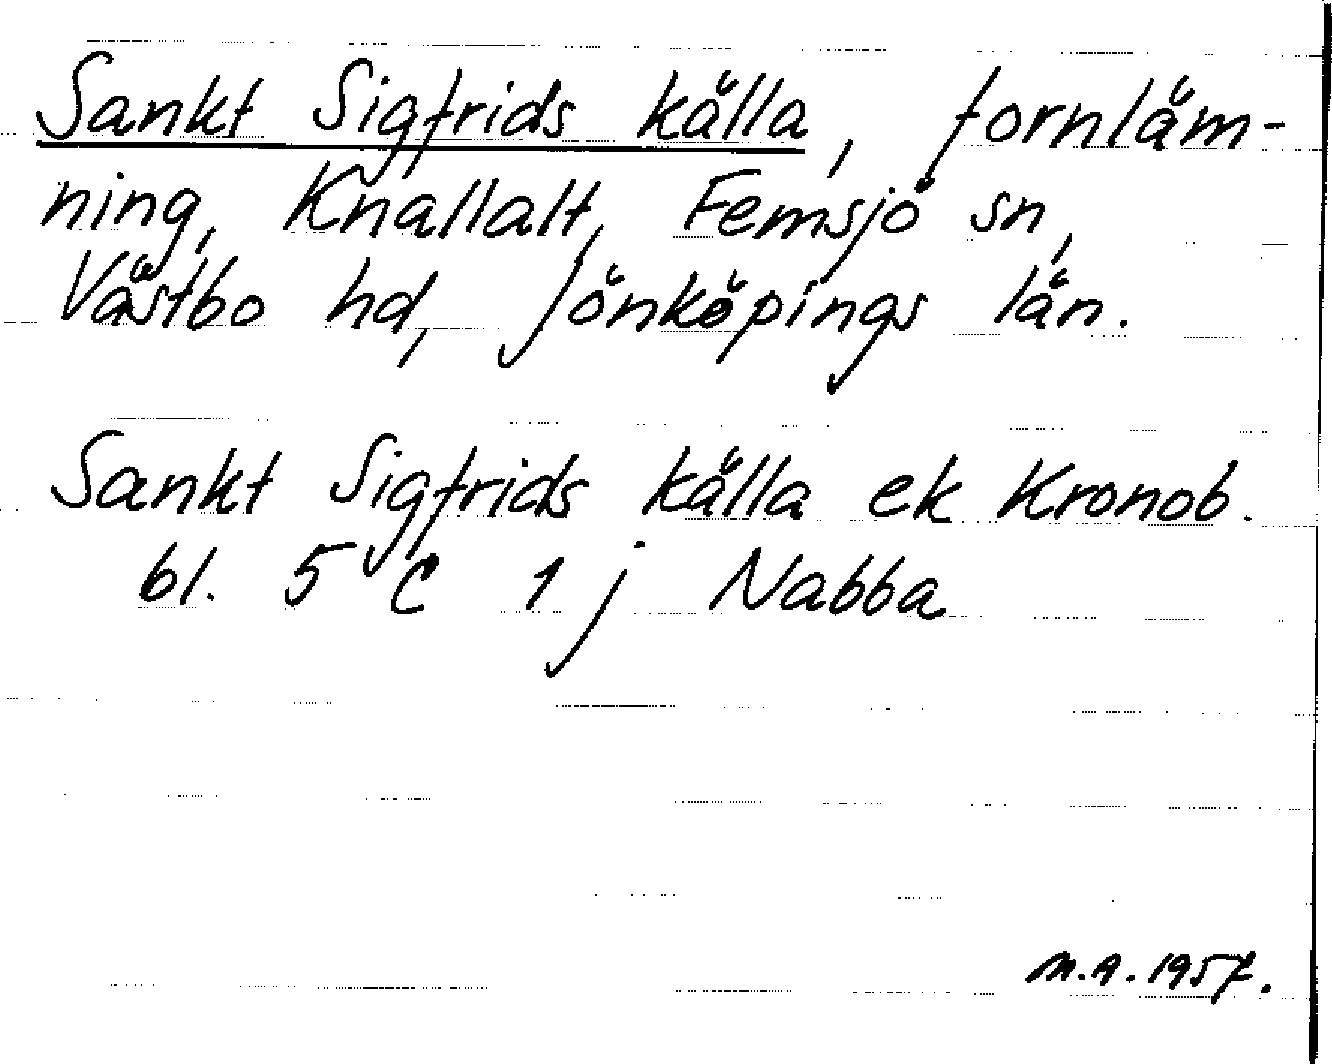 Sankt Sigfrids källa, fornläm-
ning, Knallalt, Femsjö sn,
Västbo hd, Jönköpings län.
Sankt Sigfrids källa ek Kronob.
bl. 5 C 1 j Nabba
M.A. 1957.